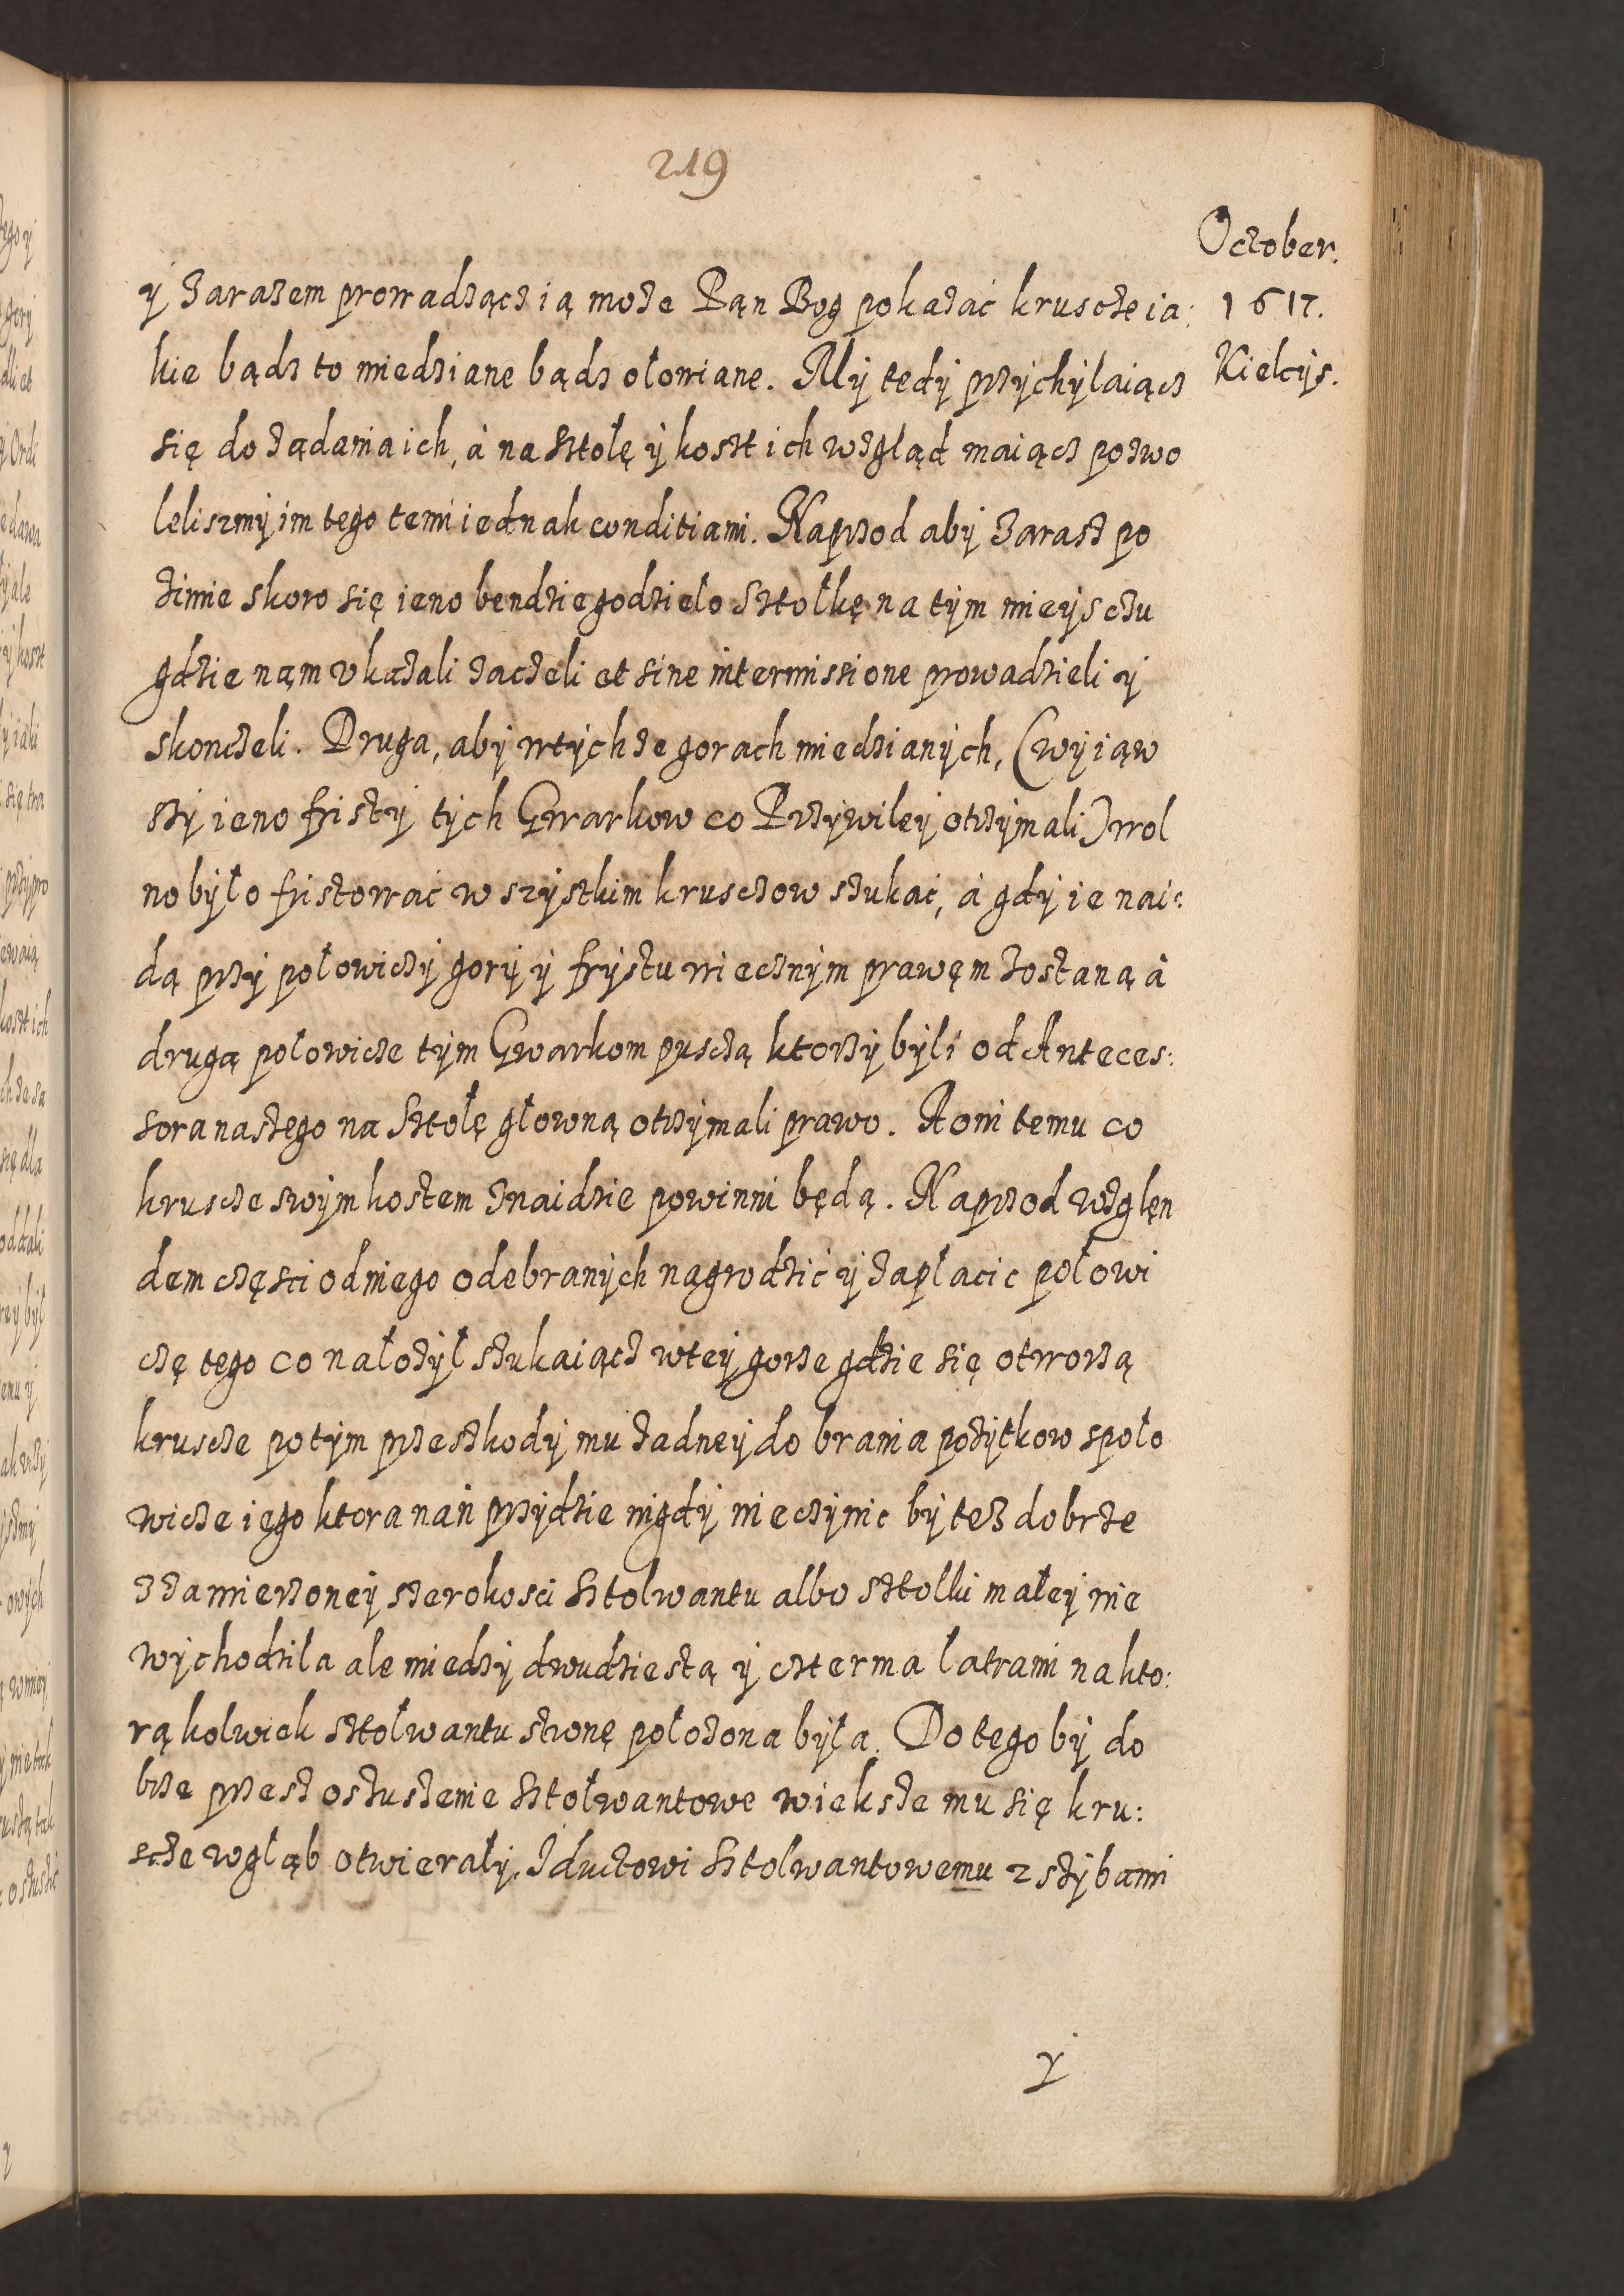 219
October.
1617.
Kielcÿs.
ÿ zarazem prowadzącz ią może Pąn Bog pokazać krusczeia:
kie bądz to miedziane bądz ołowiane. Mÿ tedÿ przÿchÿlaiącz
się do żądania ich, à na Sztolę ÿ koszt ich wzgląd maiącz pozwo
leliszmÿ im tego temi iednak conditiami. Naprzod abÿ zarasz po
zimie skoro się ieno bendzie godzieło Sztolkę na tÿm mieÿsczu
gdzie nąm vkazali zaczeli et sine intermissione prowadzieli ÿ
skonczeli. Druga, abÿ wtÿchze gorach miedzianÿch, (wÿiąw
szÿ ieno fristÿ tÿch Gwarkow co Przÿwileÿ otrzÿmali) wol
no bÿło fristowac wszÿstkim krusczow szukać, à gdÿ ie nai:
dą przÿ połowiczÿ gorÿ ÿ frÿstu wiecznÿm prawęm zostaną à
drugą połowicze tÿm Gwarkom pusczą ktorzÿ bÿli od Anteces:
sora naszego na Sztolę głowną otrzÿmali prawo. A oni temu co
kruscze swÿm kosztem znaidzie powinni będą. Naprzod wzglęn
dem częsci od niego odebranÿch nagrodzić ÿ zapłacic połowi
czę tego co nałożÿł szukaiącz wteÿ gorze gdzie się otworzą
kruscze potÿm przeszkodÿ mu żadneÿ do brania pożÿtkow społo
wicze iego ktora nań przÿdzie nigdÿ nie czÿnic bÿ tesz dobrze
z zamierzoneÿ szerokosci Sztolwantu albo Sztolki małeÿ nie
wÿchodzila ale miedzÿ dwudziestą ÿ czterma latrami na kto:
rą kolwiek Sztolwantu stronę położona bÿła. Do tego bÿ do
brze przesz oszuszenie Sztolwantowe wieksze mu się kru:
scze wgłąb otwierałÿ. Iductowi Sztolwantowemu z szÿbami
ÿ